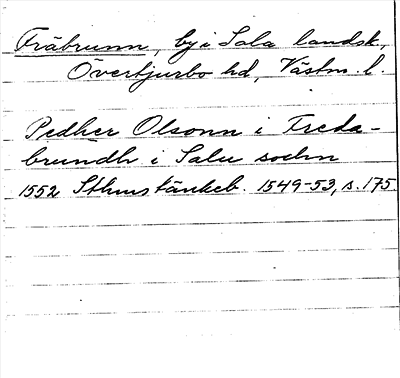 Fräbrunn, by i Sala landsk.,
Övertjurbo hd, Västm. l.
Pedher Olsonn i Freda-
brundh i Salu sochn
1552 Sthms tänkeb. 1549-53, s. 175.